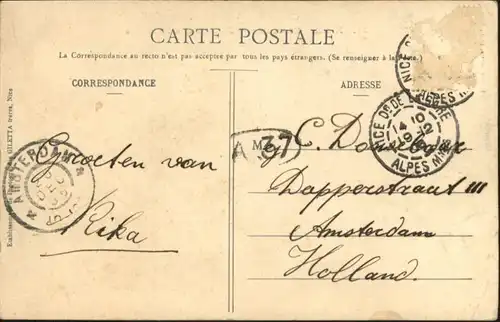 CARTE POSTALE
La Correspondance au recto n'est pas acceptée par tous les pays étrangers. (Se renseigner à la Poste).
CORRESPONDANCE
ADRESSE
Groeten van
Rika
A 37
C. Donselaar
Dapperstraat 111
Amsterdam
Holland.
AMSTERDAM
GILETTA frères, Nice
ALPES Mmes
14 10